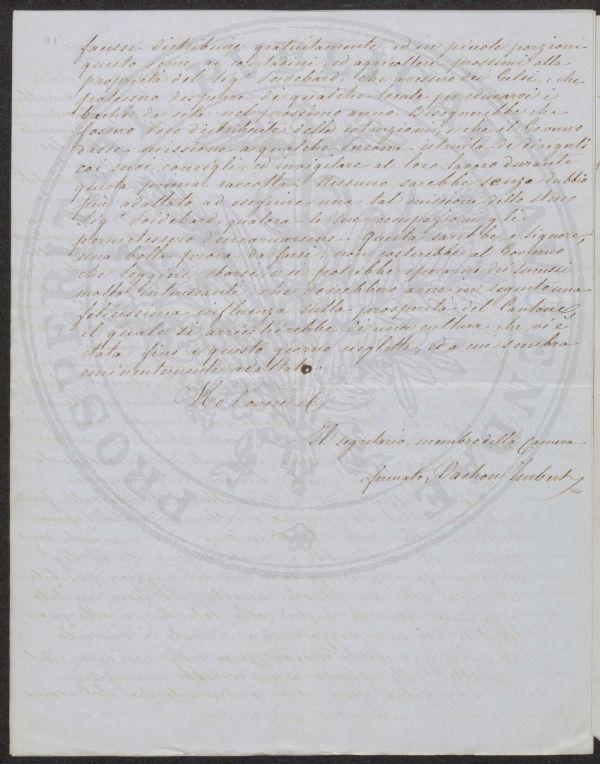 facesse distribuire gratuitamente, ed in piccole porzioni
questo seme ai contadini, ed agricoltori prossimi alla
proprietà del Sigr. Soidebard, che avessero dei Gelsi, e che
potessero disporre di qualche locale per educarvi i
bachi da seta nel prossimo anno. Bisognerebbe che
fossero loro distribuite delle istruzioni, e che il Governo
dasse missione a qualche persona istruita de dirigerli
coi suoi consigli, ed invigilare al loro lavoro durante
questa prima raccolta. Nessuno sarebbe senza dubbio
più adattato ad eseguire una tal missione dello stesso
Sigr. Soidebard, qualora le sue occupazioni gli
permettessero d'incaricarsene. Questa sarebbe, o signore,
una bella prova da farsi, non costerebbe al Governo
che leggieri sborsi, e se potrebbe sperarne dei successi
molto interessanti, che dovrebbero avere in seguito una
felicissima influenza sulla prosperità del Cantone,
il quale si arricchirebbe di una cultura che vi è
stata fino a questo giorno negletta, ed a cui sembra
eminentemente adattato.
Ho l'onore &
Il segretario, membro della Camera
firmato, Vachon Imbert
PROSPERITÀ